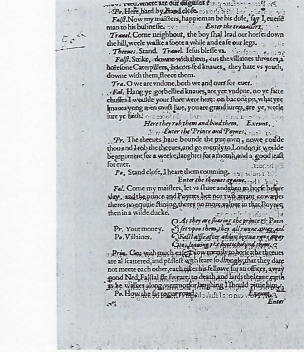 Po. Here hard by, stand close.
Falst. Now my maisters, happie man be his dole, say I, euerie
man to his businesse. Enter the trauailers.
Trauel. Come neighbour, the boy shal lead our horses down
the hill, weele walke a foote a while and ease our legs.
Theeues. Stand. Trauel. Jesus blesse vs.
Falst. Strike, downe with them, cut the villaines throates, a
horesone Caterpillers, bacon-fed knaues, they hate vs youth,
downe with them, fleece them.
Tra. O we are vndone, both we and ours for euer.
Fal. Hang ye gorbellied knaues, are yee vndone, no ye fatte
chuffes I would your store were here: on bacons on, what yee
knaues yong men must liue, you are grand iurers, are ye, weele
iure ye faith.
Here they rob them and bind them. Exeunt.
Enter the Prince and Poynes.
Pr. The theeues haue bound the true men, nowe coulde
thou and I rob the theeues, and go merily to London, it would
be argument for a weeke, laughter for a month, and a good ieast
for euer.
Po. Stand close, I heare them comming.
Enter the theeues againe.
Fal. Come my maisters, let vs share and then to horse before
day, and the prince and Poynes bee not two arrant cowards
theres no equitie stirring, theres no more valour in that Poynes,
then in a wilde ducke.
Pr. Your money.
Po. Villaines.
As they are sharing the prince & Poins
set vpon them, they all runne away, and
Falstalffe after a blow or two runs away
too, leauing the bootie behind them.
Prin. Got with much ease. Now merrily to horse, the theeues
are al scattered, and possest with feare so strongly, that they dare
not meete each other, each takes his fellow for an officer, away
good Ned, Falstalffe sweates to death, and lards the leane earth
as he walkes along, wert not for laughing I should pittie him.
Po. How the fat rogue roard. Exeunt.
Enter